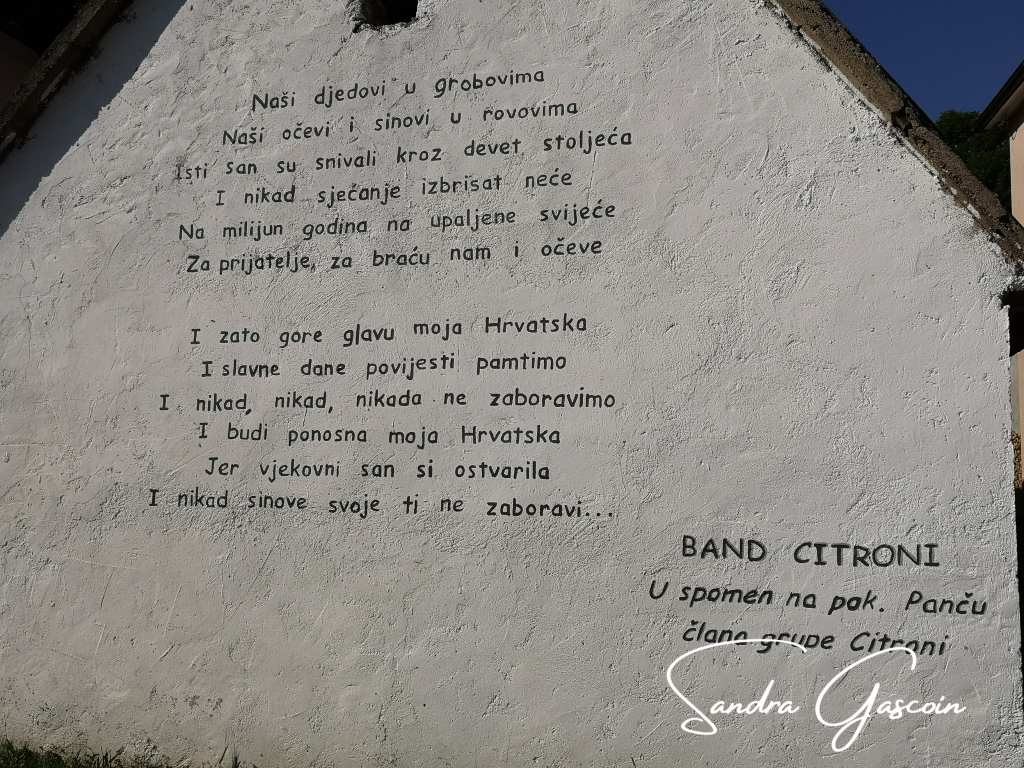 Naši djedovi u grobovima
Naši očevi i sinovi u rovovima
Isti san su snivali kroz devet stoljeća
I nikad sjećanje izbrisat neće
Na milijun godina na upaljene svijeće
Za prijatelje, za braću nam i očeve
I zato gore glavu moja Hrvatska
I slavne dane povijesti pamtimo
I nikad, nikad, nikada ne zaboravimo
I budi ponosna moja Hrvatska
Jer vjekovni san si ostvarila
I nikad sinove svoje ti ne zaboravi...
BAND CITRONI
U spomen na pok. Panču
člana grupe Citroni
Sandra Gascoin